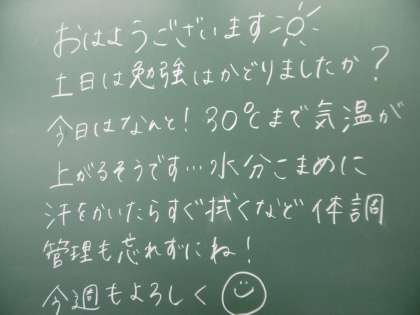 おはようございます
土日は勉強はかどりましたか？
今日はなんと！30℃まで気温が
上がるそうです…水分こまめに
汗をかいたらすぐ拭くなど体調
管理も忘れずにね！
今週もよろしく